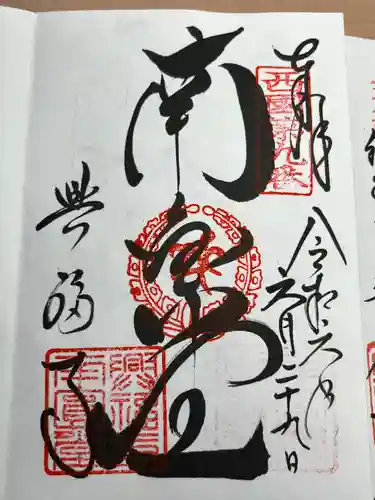 奉拝
西國第九番
令和六年
六月二十九日
南円堂
興福寺